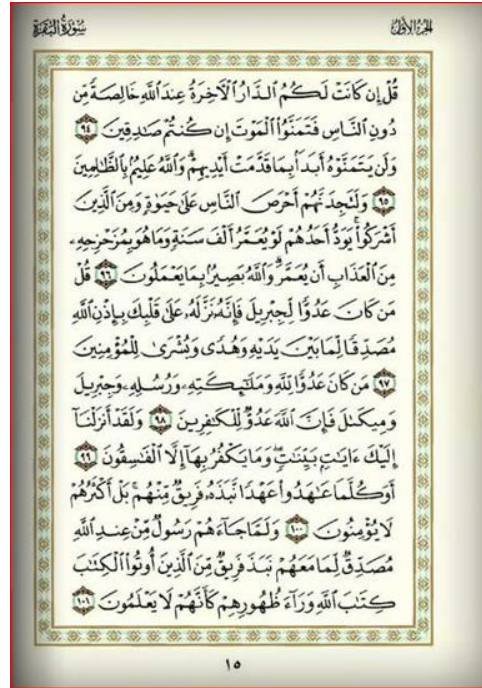 الجزء الأول
سورة البقرة
قُلْ إِن كَانَتْ لَكُمُ الدَّارُ الْآخِرَةُ عِندَ اللَّهِ خَالِصَةً مِّن
دُونِ النَّاسِ فَتَمَنَّوُا الْمَوْتَ إِن كُنتُمْ صَادِقِينَ ٩٤
وَلَن يَتَمَنَّوْهُ أَبَدًا بِمَا قَدَّمَتْ أَيْدِيهِمْ وَاللَّهُ عَلِيمٌ بِالظَّالِمِينَ
٩٥ وَلَتَجِدَنَّهُمْ أَحْرَصَ النَّاسِ عَلَىٰ حَيَوٰةٍ وَمِنَ الَّذِينَ
أَشْرَكُوا يَوَدُّ أَحَدُهُمْ لَوْ يُعَمَّرُ أَلْفَ سَنَةٍ وَمَا هُوَ بِمُزَحْزِحِهِ
مِنَ الْعَذَابِ أَن يُعَمَّرَ وَاللَّهُ بَصِيرٌ بِمَا يَعْمَلُونَ ٩٦ قُلْ
مَن كَانَ عَدُوًّا لِّجِبْرِيلَ فَإِنَّهُ نَزَّلَهُ عَلَىٰ قَلْبِكَ بِإِذْنِ اللَّهِ
مُصَدِّقًا لِّمَا بَيْنَ يَدَيْهِ وَهُدًى وَبُشْرَىٰ لِلْمُؤْمِنِينَ
٩٧ مَن كَانَ عَدُوًّا لِّلَّهِ وَمَلَٰئِكَتِهِ وَرُسُلِهِ وَجِبْرِيلَ
وَمِيكَىٰلَ فَإِنَّ اللَّهَ عَدُوٌّ لِّلْكَٰفِرِينَ ٩٨ وَلَقَدْ أَنزَلْنَا
إِلَيْكَ ءَايَٰتٍ بَيِّنَٰتٍ وَمَا يَكْفُرُ بِهَا إِلَّا الْفَٰسِقُونَ ٩٩
أَوَكُلَّمَا عَٰهَدُوا عَهْدًا نَّبَذَهُ فَرِيقٌ مِّنْهُم بَلْ أَكْثَرُهُمْ
لَا يُؤْمِنُونَ ١٠٠ وَلَمَّا جَاءَهُمْ رَسُولٌ مِّنْ عِندِ اللَّهِ
مُصَدِّقٌ لِّمَا مَعَهُمْ نَبَذَ فَرِيقٌ مِّنَ الَّذِينَ أُوتُوا الْكِتَٰبَ
كِتَٰبَ اللَّهِ وَرَاءَ ظُهُورِهِمْ كَأَنَّهُمْ لَا يَعْلَمُونَ ١٠١
١٥